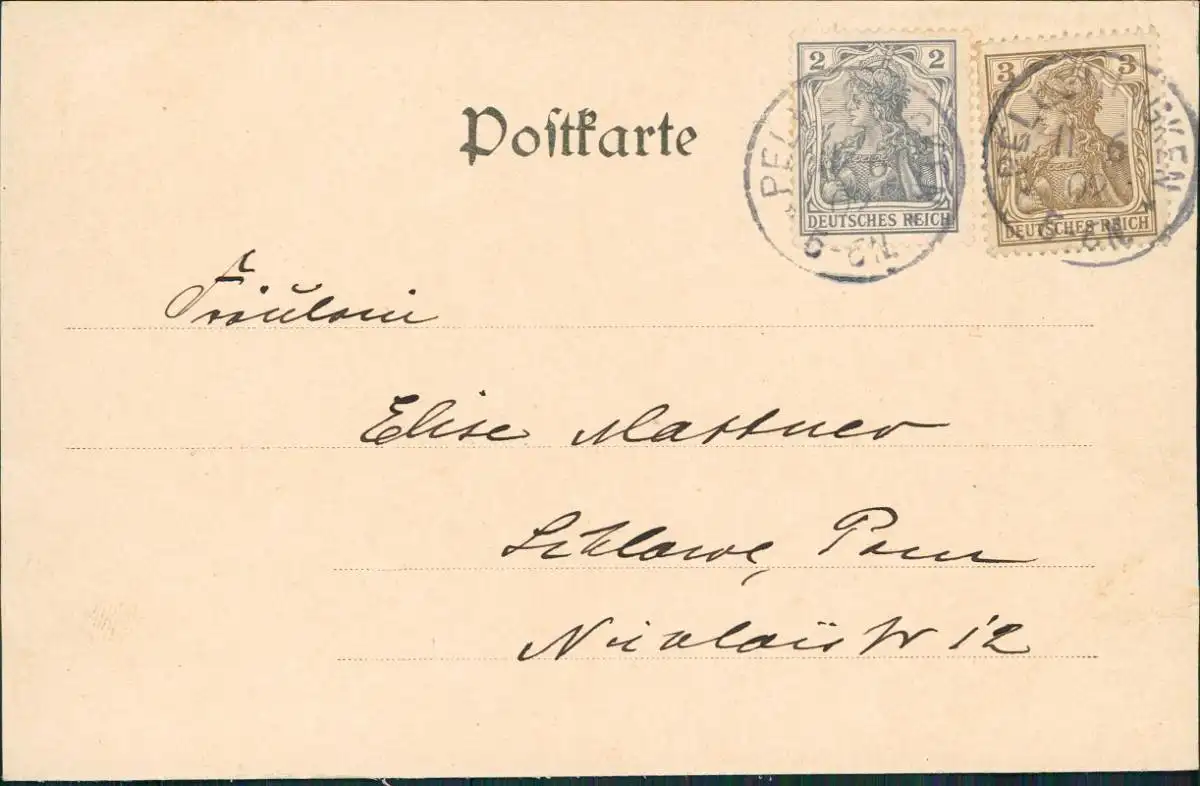 2 2
DEUTSCHES REICH
3 3
DEUTSCHES REICH
Postkarte
5-6N.
Fräulein
Elise Mattner
Schlawe, Pom
Nicolaistr 12